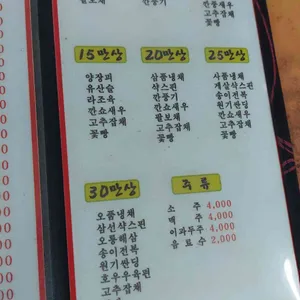 팔보채
깐풍기
깐풍새우
고추잡채
꽃빵
15만상
양장피
유산슬
라조육
깐쇼새우
고추잡채
꽃빵
20만상
삼품냉채
샥스핀
깐풍기
깐쇼새우
팔보채
고추잡채
꽃빵
25만상
사품냉채
게살샥스핀
송이전복
원기싼딩
깐쇼새우
고추잡채
꽃빵
30만상
오품냉채
삼선샥스핀
오통해삼
송이전복
원기싼딩
호우우육편
고추잡채
주류
소 주 4,000
맥 주 4,000
이과두주 4,000
음료수 2,000